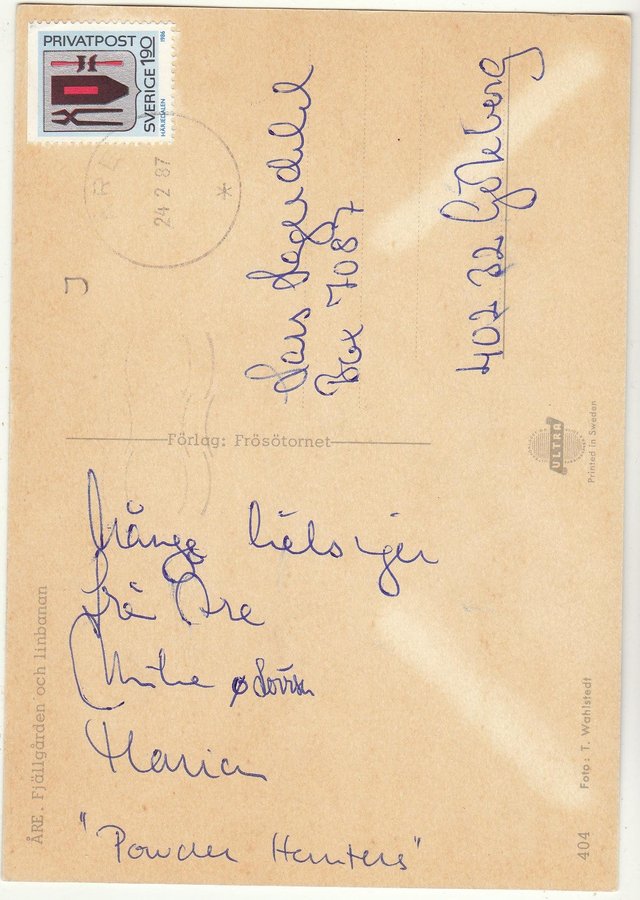 PRIVATPOST
SVERIGE 190
1986
HÄRJEDALEN
24 2 87
Lars
Box 7087
402 32 Göteborg
Förlag: Frösötornet
ULTRA
Printed in Sweden
Många hälsningar
från Åre
Maria
"Powder Hunters"
ÅRE. Fjällgården och linbanan
Foto: T. Wahlstedt
404